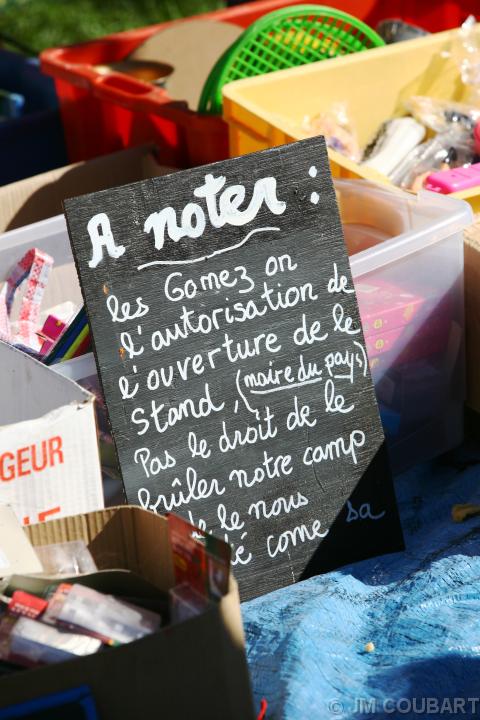 A noter :
les Gomez on
l'autorisation de
l'ouverture de le
Stand, (maire du pays)
Pas le droit de le
brûler notre camp
de le nous
come sa
GEUR
© JM COUBART